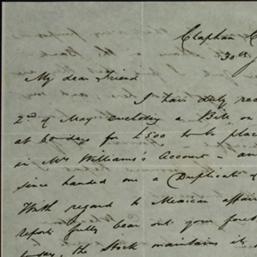 Clapham
30th
My dear Friend
I have duly
2d of May enclosing a Bill on
at 60 days for £500 to be place
in Mr Williams's Account - an
since handed me a Duplicate of
With regard to Mexican affair
reports fully bear out your
today, the Stock maintains its